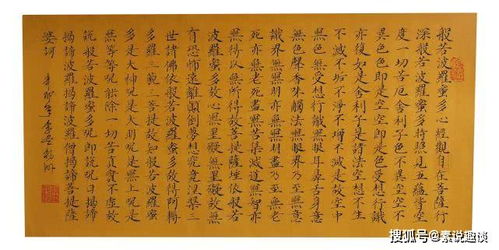 般若波羅蜜多心經觀自在菩薩行
深般若波羅蜜多時照見五蘊皆空
度一切苦厄舍利子色不異空空不
異色色即是空空即是色受想行識
亦復如是舍利子是諸法空相不生
不滅不垢不淨不增不減是故空中
無色無受想行識無眼耳鼻舌身意
無色聲香味觸法無眼界乃至無意
識界無無明亦無無明盡乃至無老
死亦無老死盡無苦集滅道無智亦
無得以無所得故菩提薩埵依般若
波羅蜜多故心無罣礙無罣礙故無
有恐怖遠離顛倒夢想究竟涅槃三
世諸佛依般若波羅蜜多故得阿耨
多羅三藐三菩提故知般若波羅蜜
多是大神咒是大明咒是無上咒是
無等等咒能除一切苦真實不虛故
說般若波羅蜜多咒即說咒曰揭諦
揭諦波羅揭諦波羅僧揭諦菩提薩
婆訶
搜狐号@素说趣谈